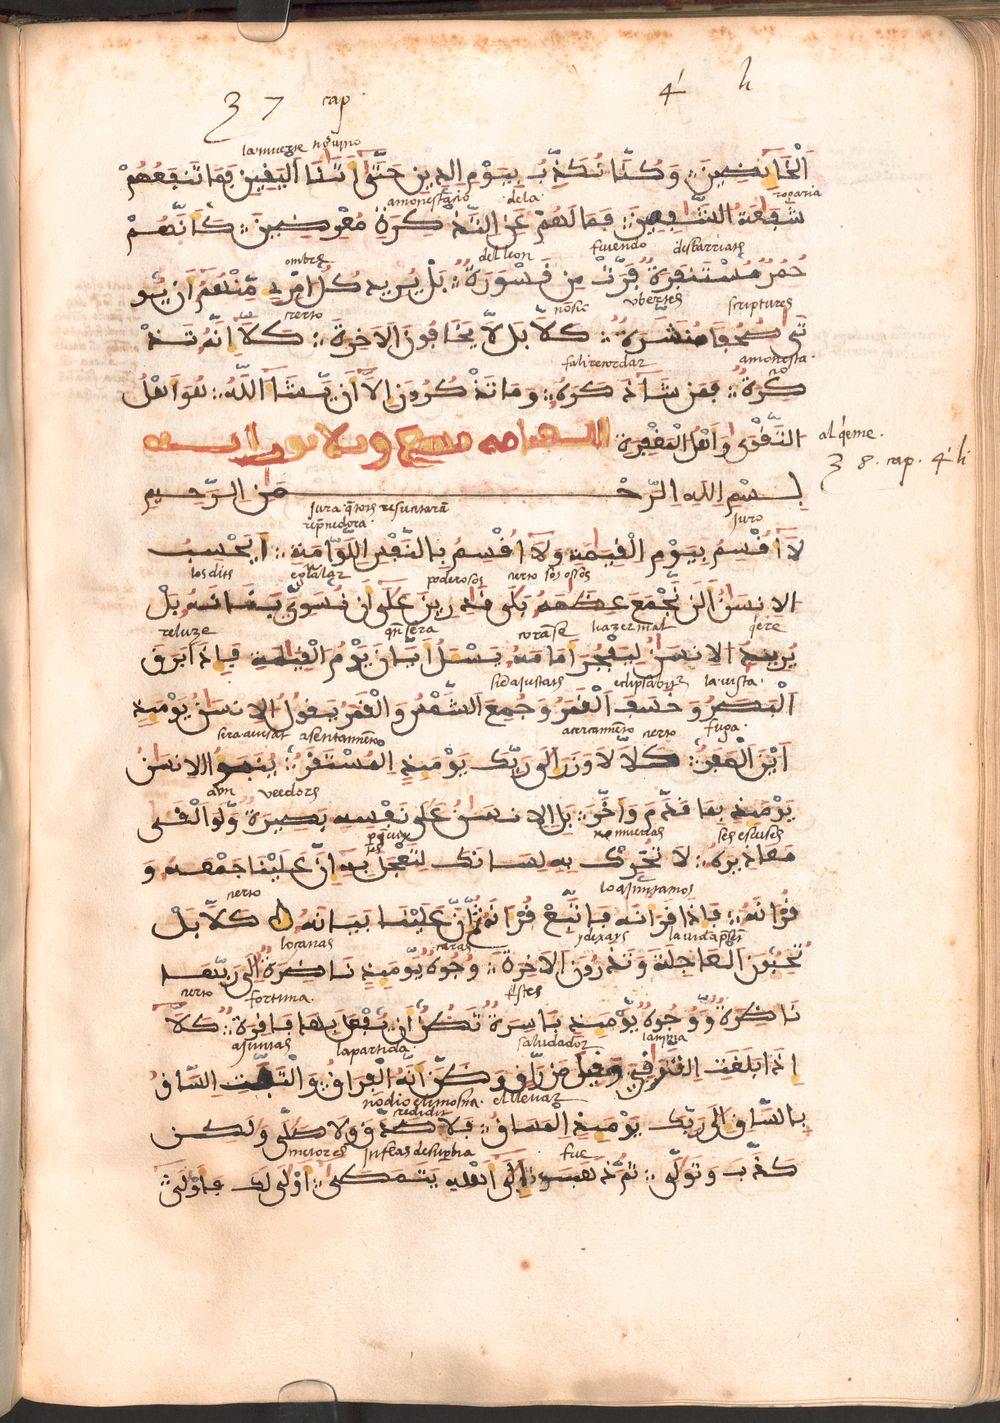 37 cap 4 h
la muerte
الْخَآئِضِينَ وَكُنَّا نُكَذِّبُ بِيَوْمِ الدِينِ حَتَّى أَتَىٰنَا الْيَقِينُ فَمَا تَنفَعُهُمْ
amonestasio dela rogaria
شَفَٰعَةُ الشَّٰفِعِينَ فَمَا لَهُمْ عَنِ التَّذْكِرَةِ مُعْرِضِينَ كَأَنَّهُمْ
ombre del leon fuiendo desbarriats
حُمُرٌ مُّسْتَنفِرَةٌ فَرَّتْ مِن قَسْوَرَةٍ بَلْ يُرِيدُ كُلُّ امْرِئٍ مِّنْهُمْ أَن يُّو
certo ubertes scriptures
تَى صُحُفًا مُنَشَّرَةً كَلَّا بَل لَّا يَخَافُونَ الْآخِرَةَ كَلَّا إِنَّهُ تَذْ
sali recordar amonesta
كِرَةٌ فَمَن شَآءَ ذَكَرَهُ وَمَا تَذْكُرُونَ إِلَّا أَن يَّشَآءَ اللَّهُ هُوَ أَهْلُ
التَّقْوَى وَأَهْلُ الْمَغْفِرَةِ
alqeme.
38. cap. 4 h
بِسْمِ اللهِ الرَّحْمَٰنِ الرَّحِيمِ
jura resusitara
reprnedora juro
لَآ أُقْسِمُ بِيَوْمِ الْقِيَٰمَةِ وَلَآ أُقْسِمُ بِالنَّفْسِ اللَّوَّامَةِ أَيَحْسِبُ
los dits poderosos certo sos ossos
الْإِنسَٰنُ أَلَّن نَّجْمَعَ عِظَامَهُ بَلَى قَٰدِرِينَ عَلَى أَن نُّسَوِّيَ بَنَانَهُ بَلْ
reluze qn sera hazer mal qere
يُرِيدُ الْإِنسَٰنُ لِيَفْجُرَ أَمَامَهُ يَسْـَٔلُ أَيَّانَ يَوْمُ الْقِيَٰمَةِ فَإِذَا بَرَقَ
la vista.
الْبَصَرُ وَخَسَفَ الْقَمَرُ وَجُمِعَ الشَّمْسُ وَالْقَمَرُ يَقُولُ الْإِنسَٰنُ يَوْمَئِذٍ
sera avisat asentamento certo fuga.
أَيْنَ الْمَفَرُّ كَلَّا لَا وَزَرَ إِلَى رَبِّكَ يَوْمَئِذٍ الْمُسْتَقَرُّ يُنَبَّؤُا الْإِنسَٰنُ
aun veedors
يَوْمَئِذٍ بِمَا قَدَّمَ وَأَخَّرَ بَلِ الْإِنسَٰنُ عَلَى نَفْسِهِ بَصِيرَةٌ وَلَوْ أَلْقَى
no muevas ses escuses
مَعَاذِيرَهُ لَا تُحَرِّكْ بِهِ لِسَانَكَ لِتَعْجَلَ بِهِ إِنَّ عَلَيْنَا جَمْعَهُ وَ
certo lo ajuntamos
قُرْءَانَهُ فَإِذَا قَرَأْنَٰهُ فَاتَّبِعْ قُرْءَانَهُ ثُمَّ إِنَّ عَلَيْنَا بَيَانَهُ كَلَّا بَلْ
loçanas caras ydexays
تُحِبُّونَ الْعَاجِلَةَ وَتَذَرُونَ الْآخِرَةَ وُجُوهٌ يَوْمَئِذٍ نَّاضِرَةٌ إِلَى رَبِّهَا
certo fortuna. tistes
نَاظِرَةٌ وَوُجُوهٌ يَوْمَئِذٍ بَاسِرَةٌ تَظُنُّ أَن يُفْعَلَ بِهَا فَاقِرَةٌ كَلَّآ
ajuntas la partida saludador
إِذَا بَلَغَتِ التَّرَاقِيَ وَقِيلَ مَن رَّاقٍ وَظَنَّ أَنَّهُ الْفِرَاقُ وَالْتَفَّتِ السَّاقُ
no dio elimosna. el llevar
credidit
بِالسَّاقِ إِلَى رَبِّكَ يَوْمَئِذٍ الْمَسَاقُ فَلَا صَدَّقَ وَلَا صَلَّى وَلَٰكِن
fue
كَذَّبَ وَتَوَلَّى ثُمَّ ذَهَبَ إِلَى أَهْلِهِ يَتَمَطَّى أَوْلَى لَكَ فَأَوْلَى